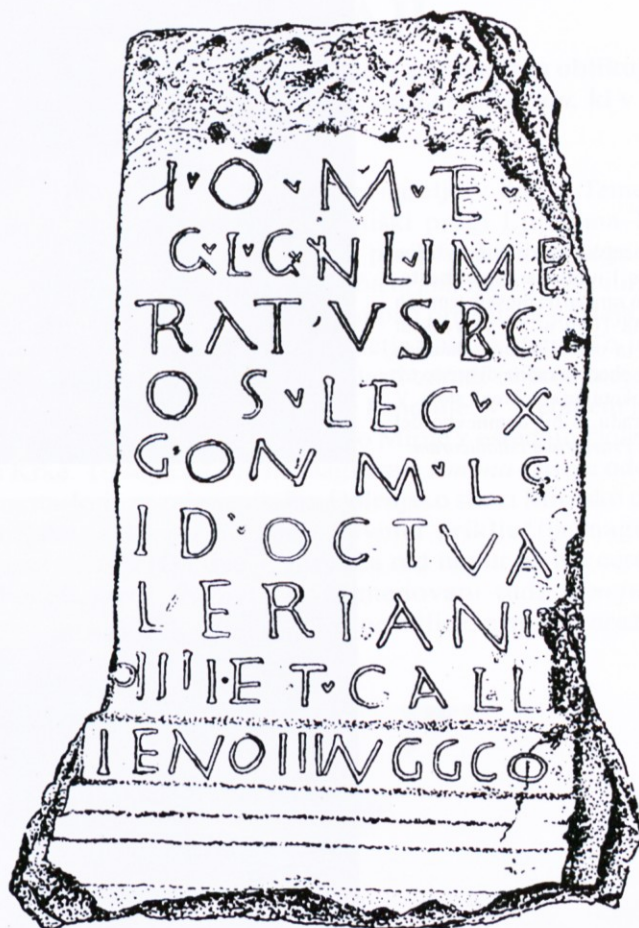 I·O·M·E·
G·L·G·N L·IMP
RAT·VS·BC
O S·LEC·X
G·ON M·LS
ID·OCTVA
LERIANI
IIII·ET·CALL
IENOII